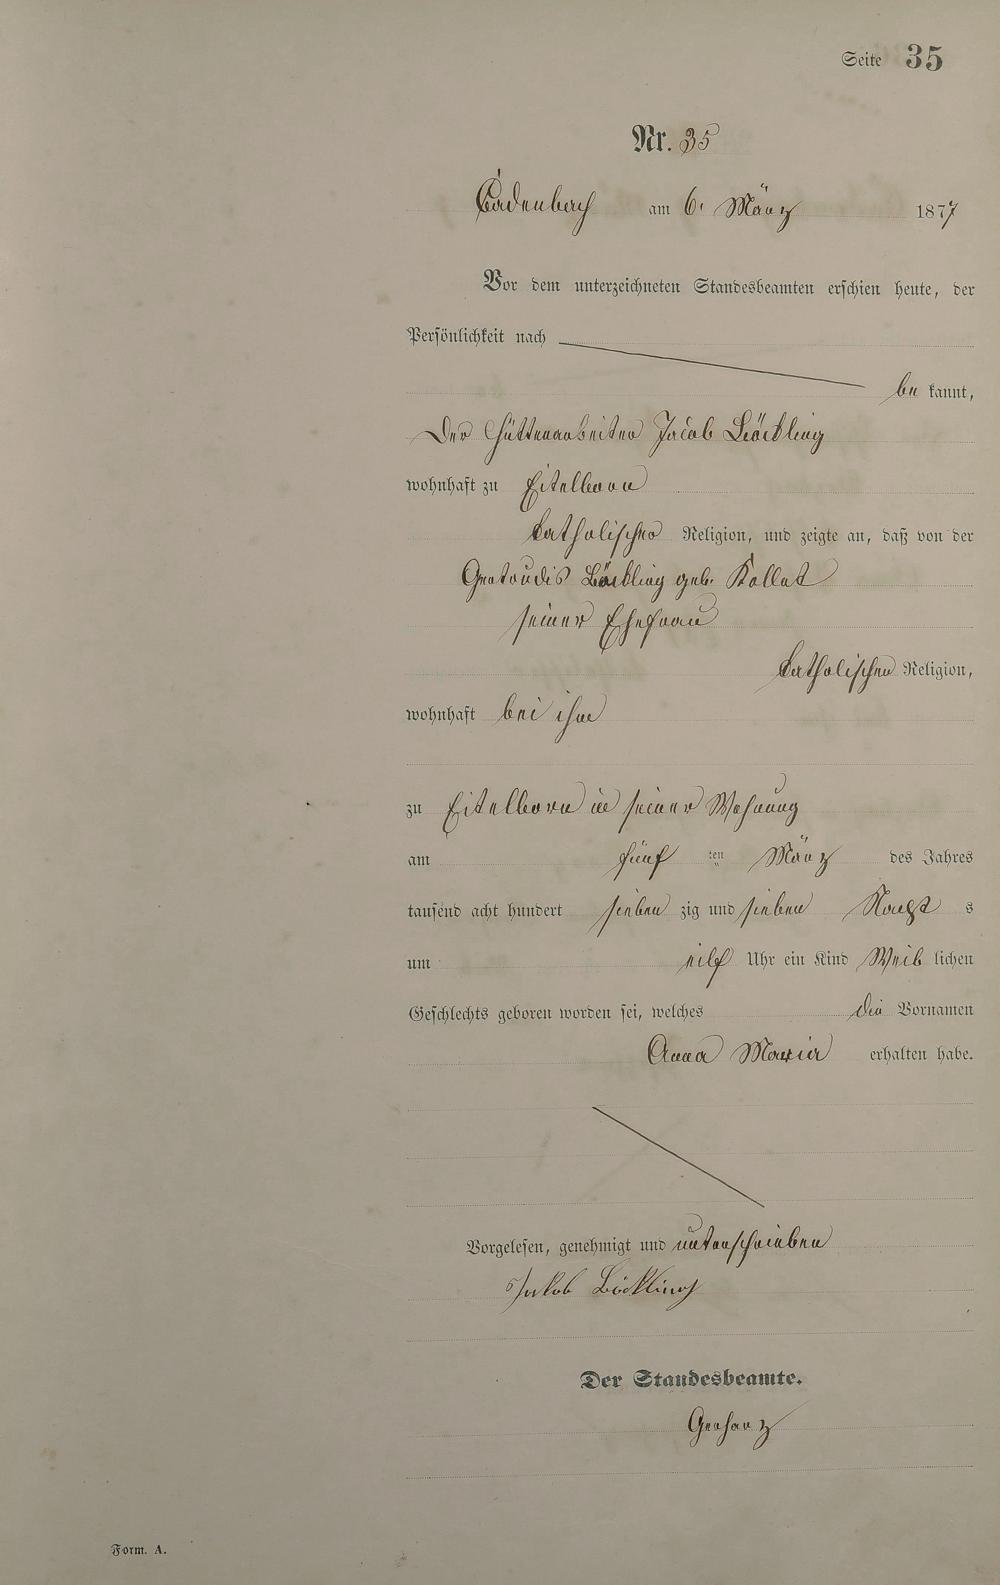 Seite 35
Nr. 35
Cadenbach am 6. März 1877
Vor dem unterzeichneten Standesbeamten erschien heute, der
Persönlichkeit nach
be kannt,
Der Hüttenarbeiter Jacob Böckling
wohnhaft zu Eitelborn
katholischer Religion, und zeigte an, daß von der
Gertrudis Böckling geb. Kollat
seiner Ehefrau
katholischen Religion,
wohnhaft bei ihm
zu Eitelborn in seiner Wohnung
am fünf ten März des Jahres
tausend acht hundert sieben zig und sieben Nachts
um eilf Uhr ein Kind Weib lichen
Geschlechts geboren worden sei, welches die Vornamen
Anna Maria erhalten habe.
Vorgelesen, genehmigt und unterschrieben
Jakob Böckling
Der Standesbeamte.
Gerharz
Form. A.